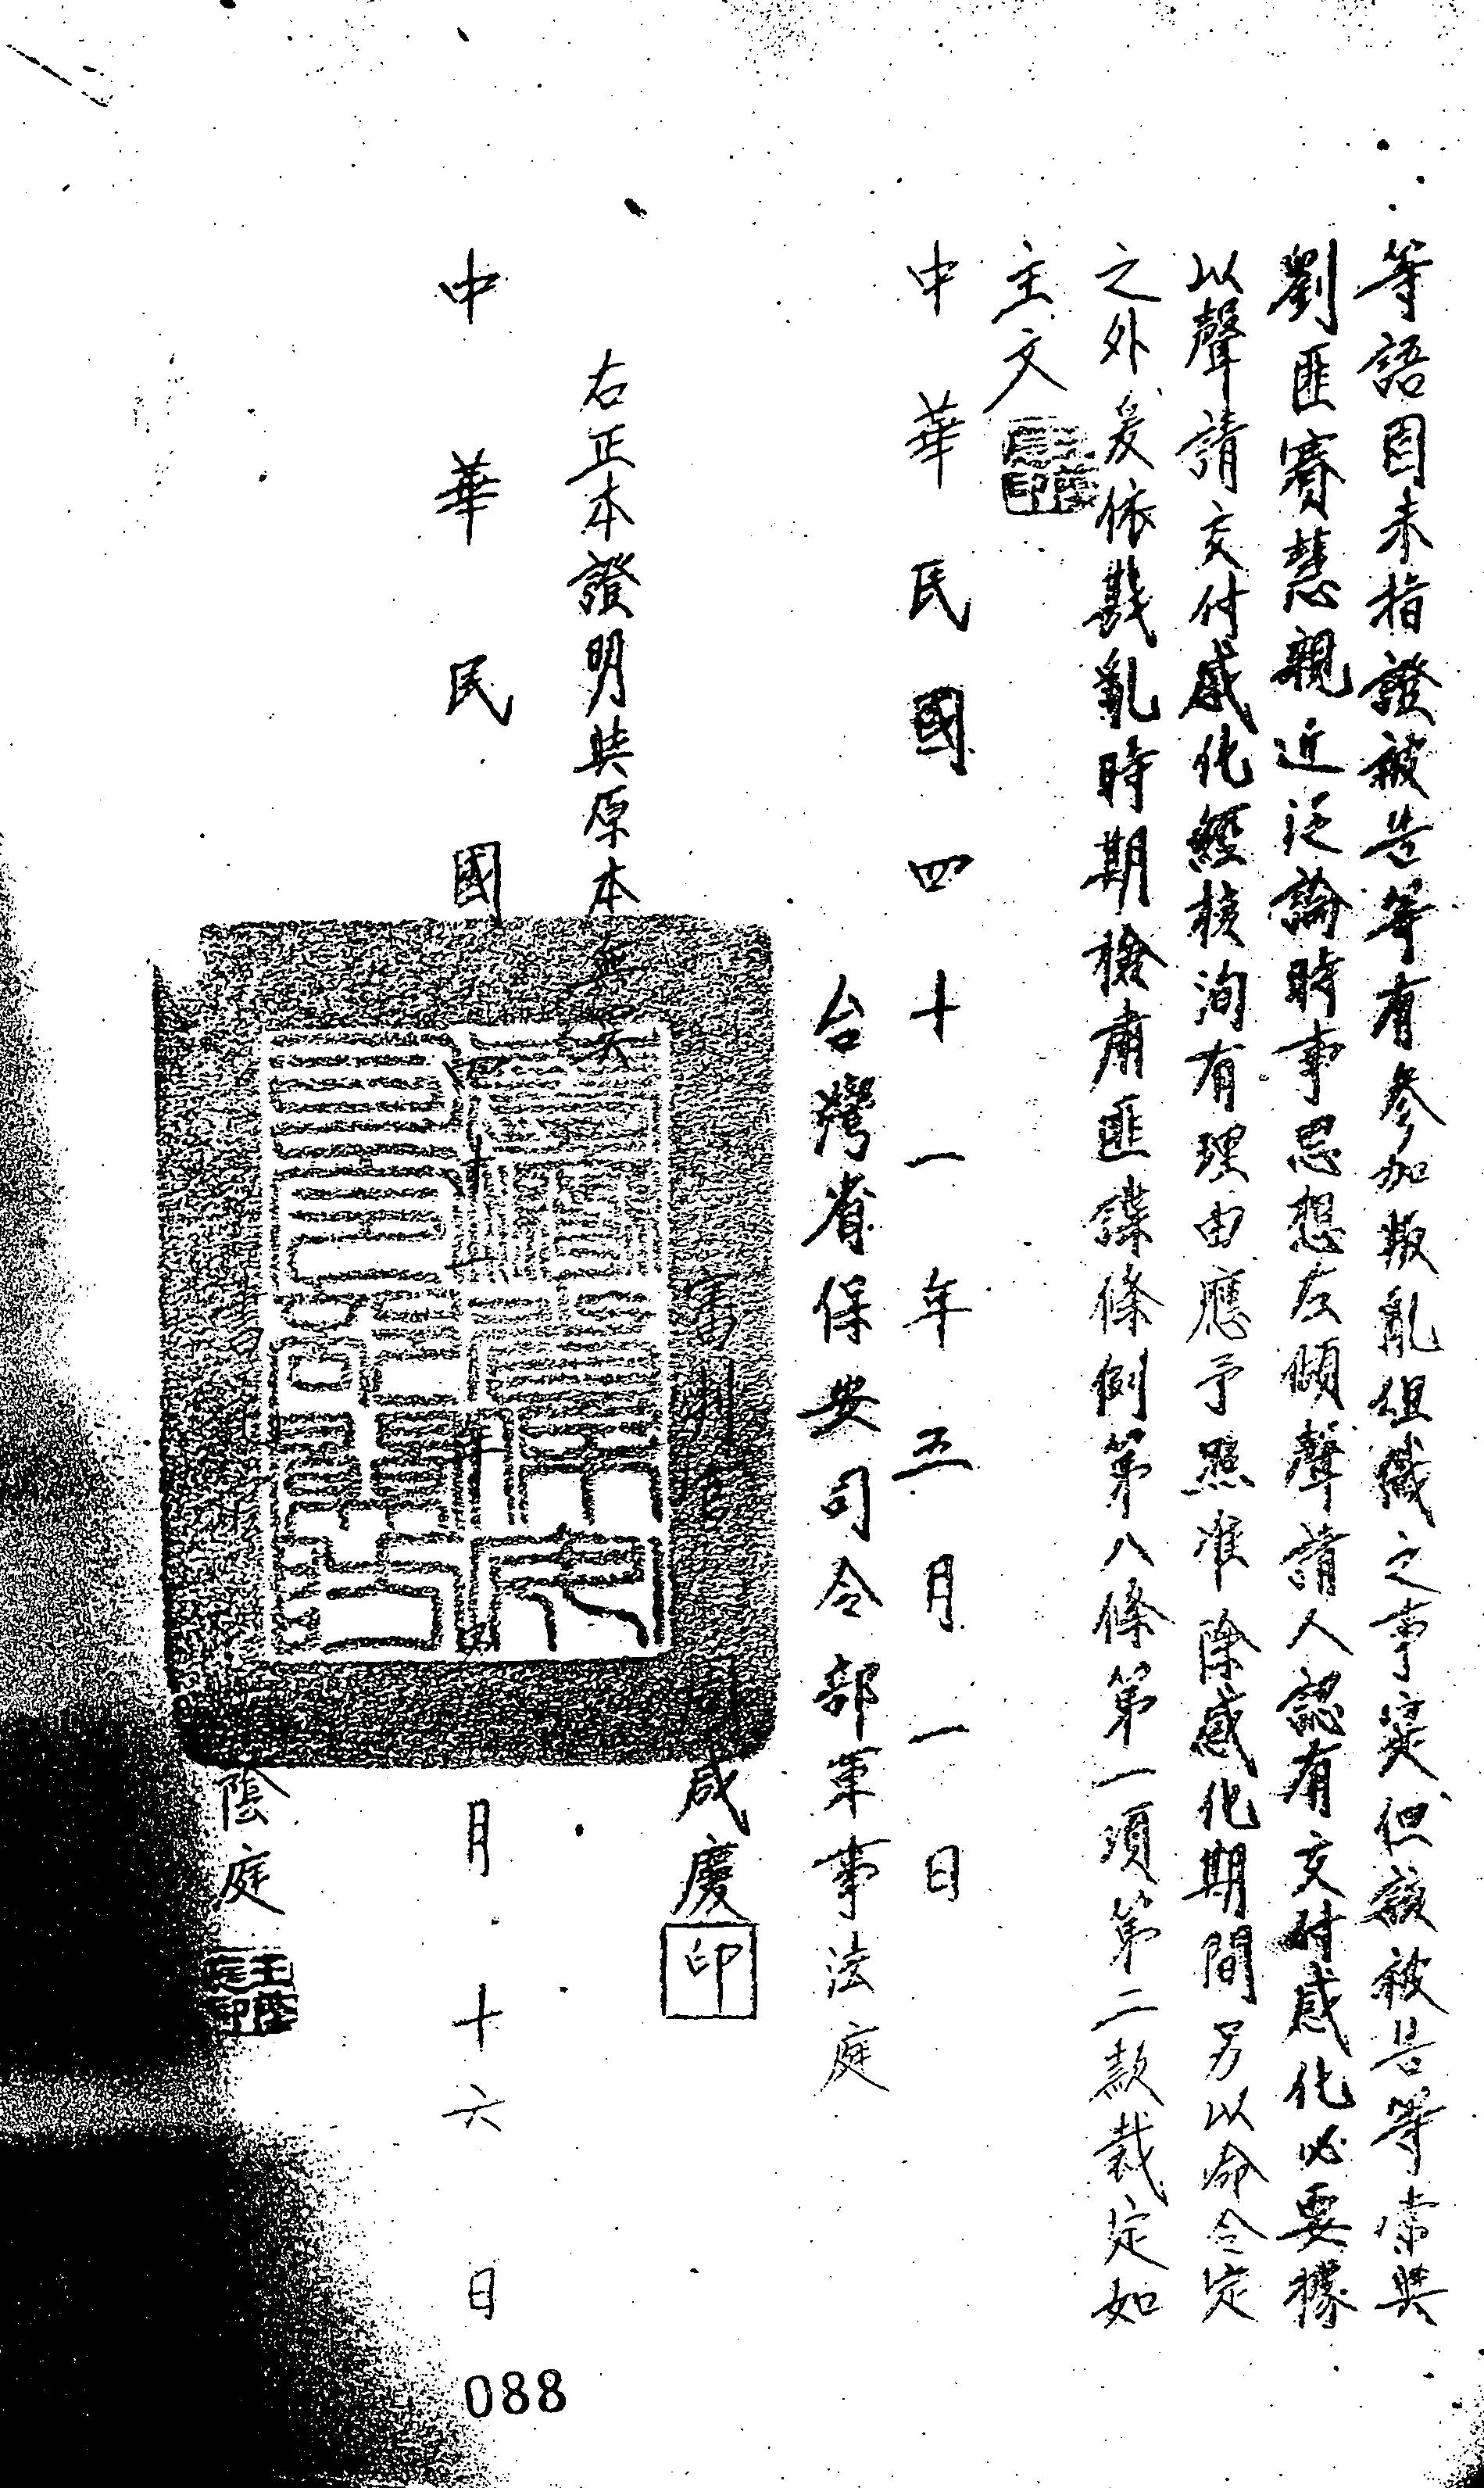 等語固未指證被告等有參加叛亂組織之事實但該被告等常與
劉匪賽慧親近泛論時事思想左傾聲請人認有交付感化必要據
以聲請交付感化經核洵有理由應予照准除感化期間另以命令定
之外爰依戡亂時期檢肅匪諜條例第八條第一項第二款裁定如
主文
中華民國四十一年五月一日
台灣省保安司令部軍事法庭
審判官 咸慶 印
右正本證明與原本無異
中華民國四十一年五月十六日
書記官 陸庭
王陸庭印
088